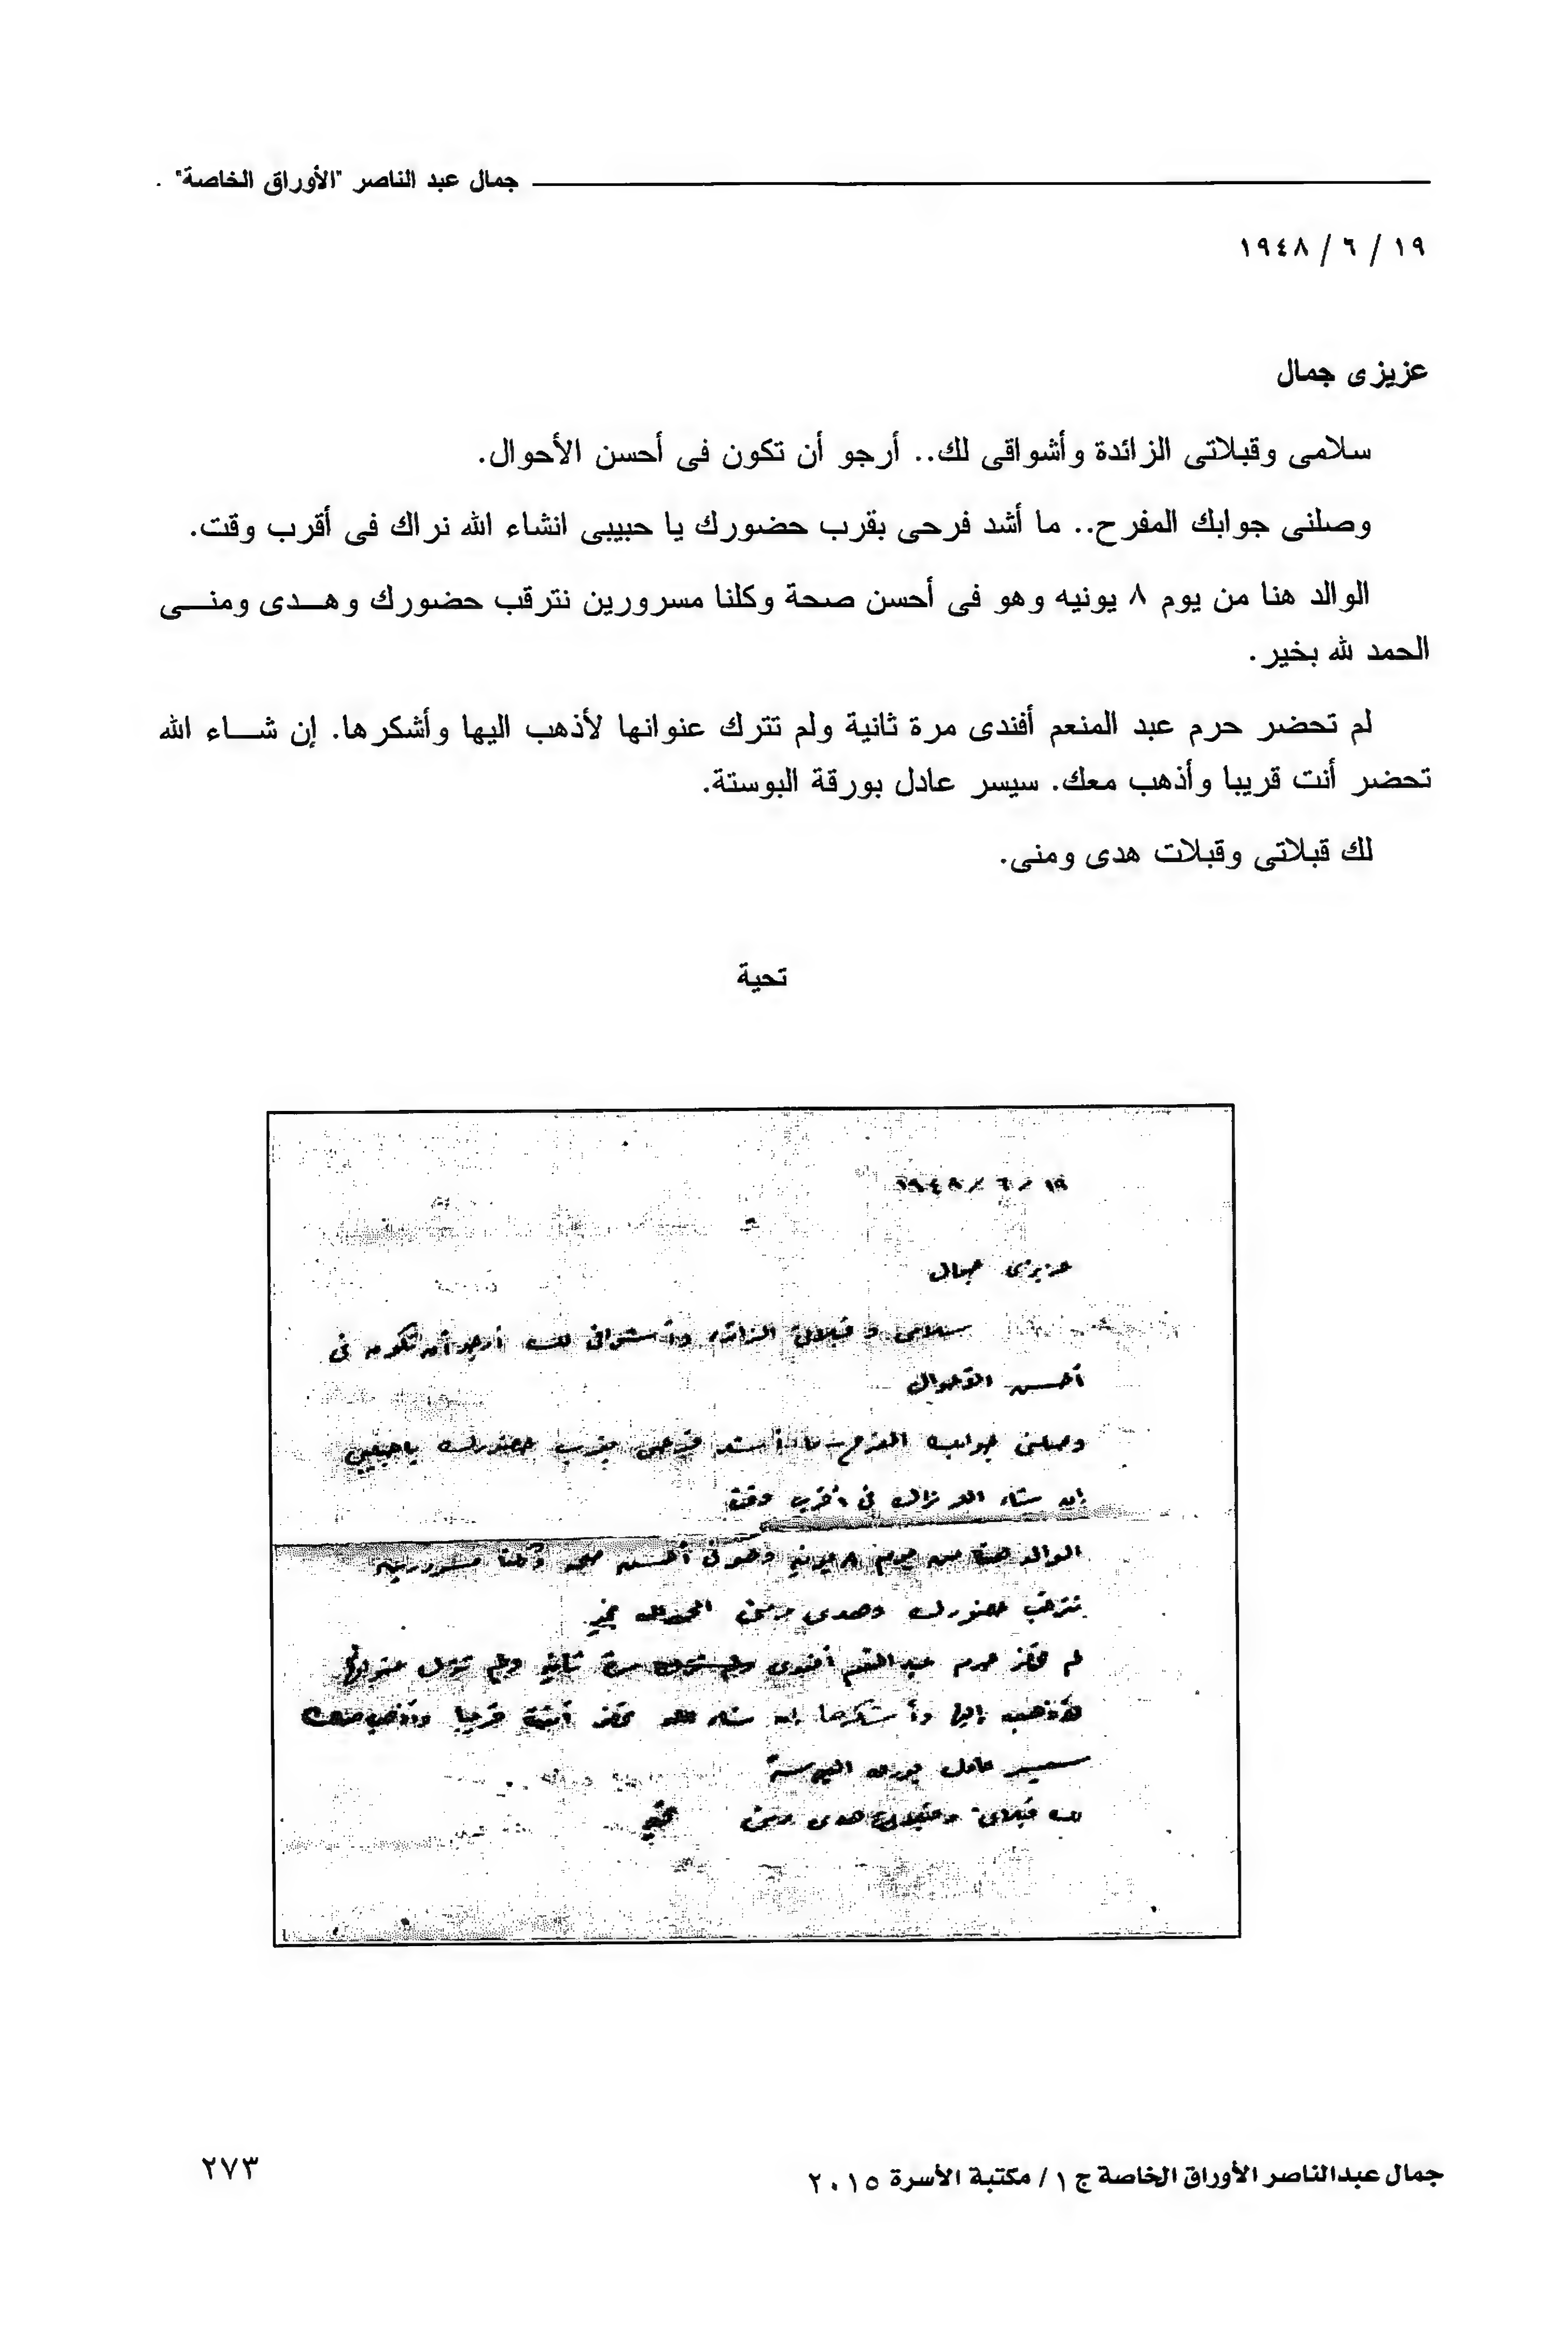 جمال عبد الناصر "الأوراق الخاصة" .
١٩ / ٦ / ١٩٤٨
عزيزى جمال
سلامى وقبلاتى الزائدة وأشواقى لك.. أرجو أن تكون فى أحسن الأحوال.
وصلنى جوابك المفرح.. ما أشد فرحى بقرب حضورك يا حبيبى انشاء الله نراك فى أقرب وقت.
الوالد هنا من يوم ٨ يونيه وهو فى أحسن صحة وكلنا مسرورين نترقب حضورك وهدى ومنى
الحمد لله بخير.
لم تحضر حرم عبد المنعم أفندى مرة ثانية ولم تترك عنوانها لأذهب اليها وأشكرها. إن شاء الله
تحضر أنت قريبا وأذهب معك. سيسر عادل بورقة البوستة.
لك قبلاتى وقبلات هدى ومنى.
تحية
١٩ / ٦ / ١٩٤٨
عزيزى جمال
سلامى وقبلاتى الزائدة وأشواقى لك أرجو أن تكون فى
أحسن الأحوال
وصلنى جوابك المفرح - ما أشد فرحى بقرب حضورك ياحبيبى
إن شاء الله نراك فى أقرب وقت
الوالد هنا من يوم ٨ يونيه وهو فى أحسن صحه وكلنا مسرورين
نترقب حضورك وهدى ومنى الحمد لله بخير
لم تحضر حرم عبد المنعم أفندى مرة ثانيه ولم تترك عنوانها
لأذهب إليها وأشكرها إن شاء الله تحضر أنت قريبا وأذهب معك
سيسر عادل بورقه البوستة
لك قبلاتى وقبلات هدى ومنى تحيه
جمال عبدالناصر الأوراق الخاصة ج ١ / مكتبة الأسرة ٢٠١٥
٢٧٣